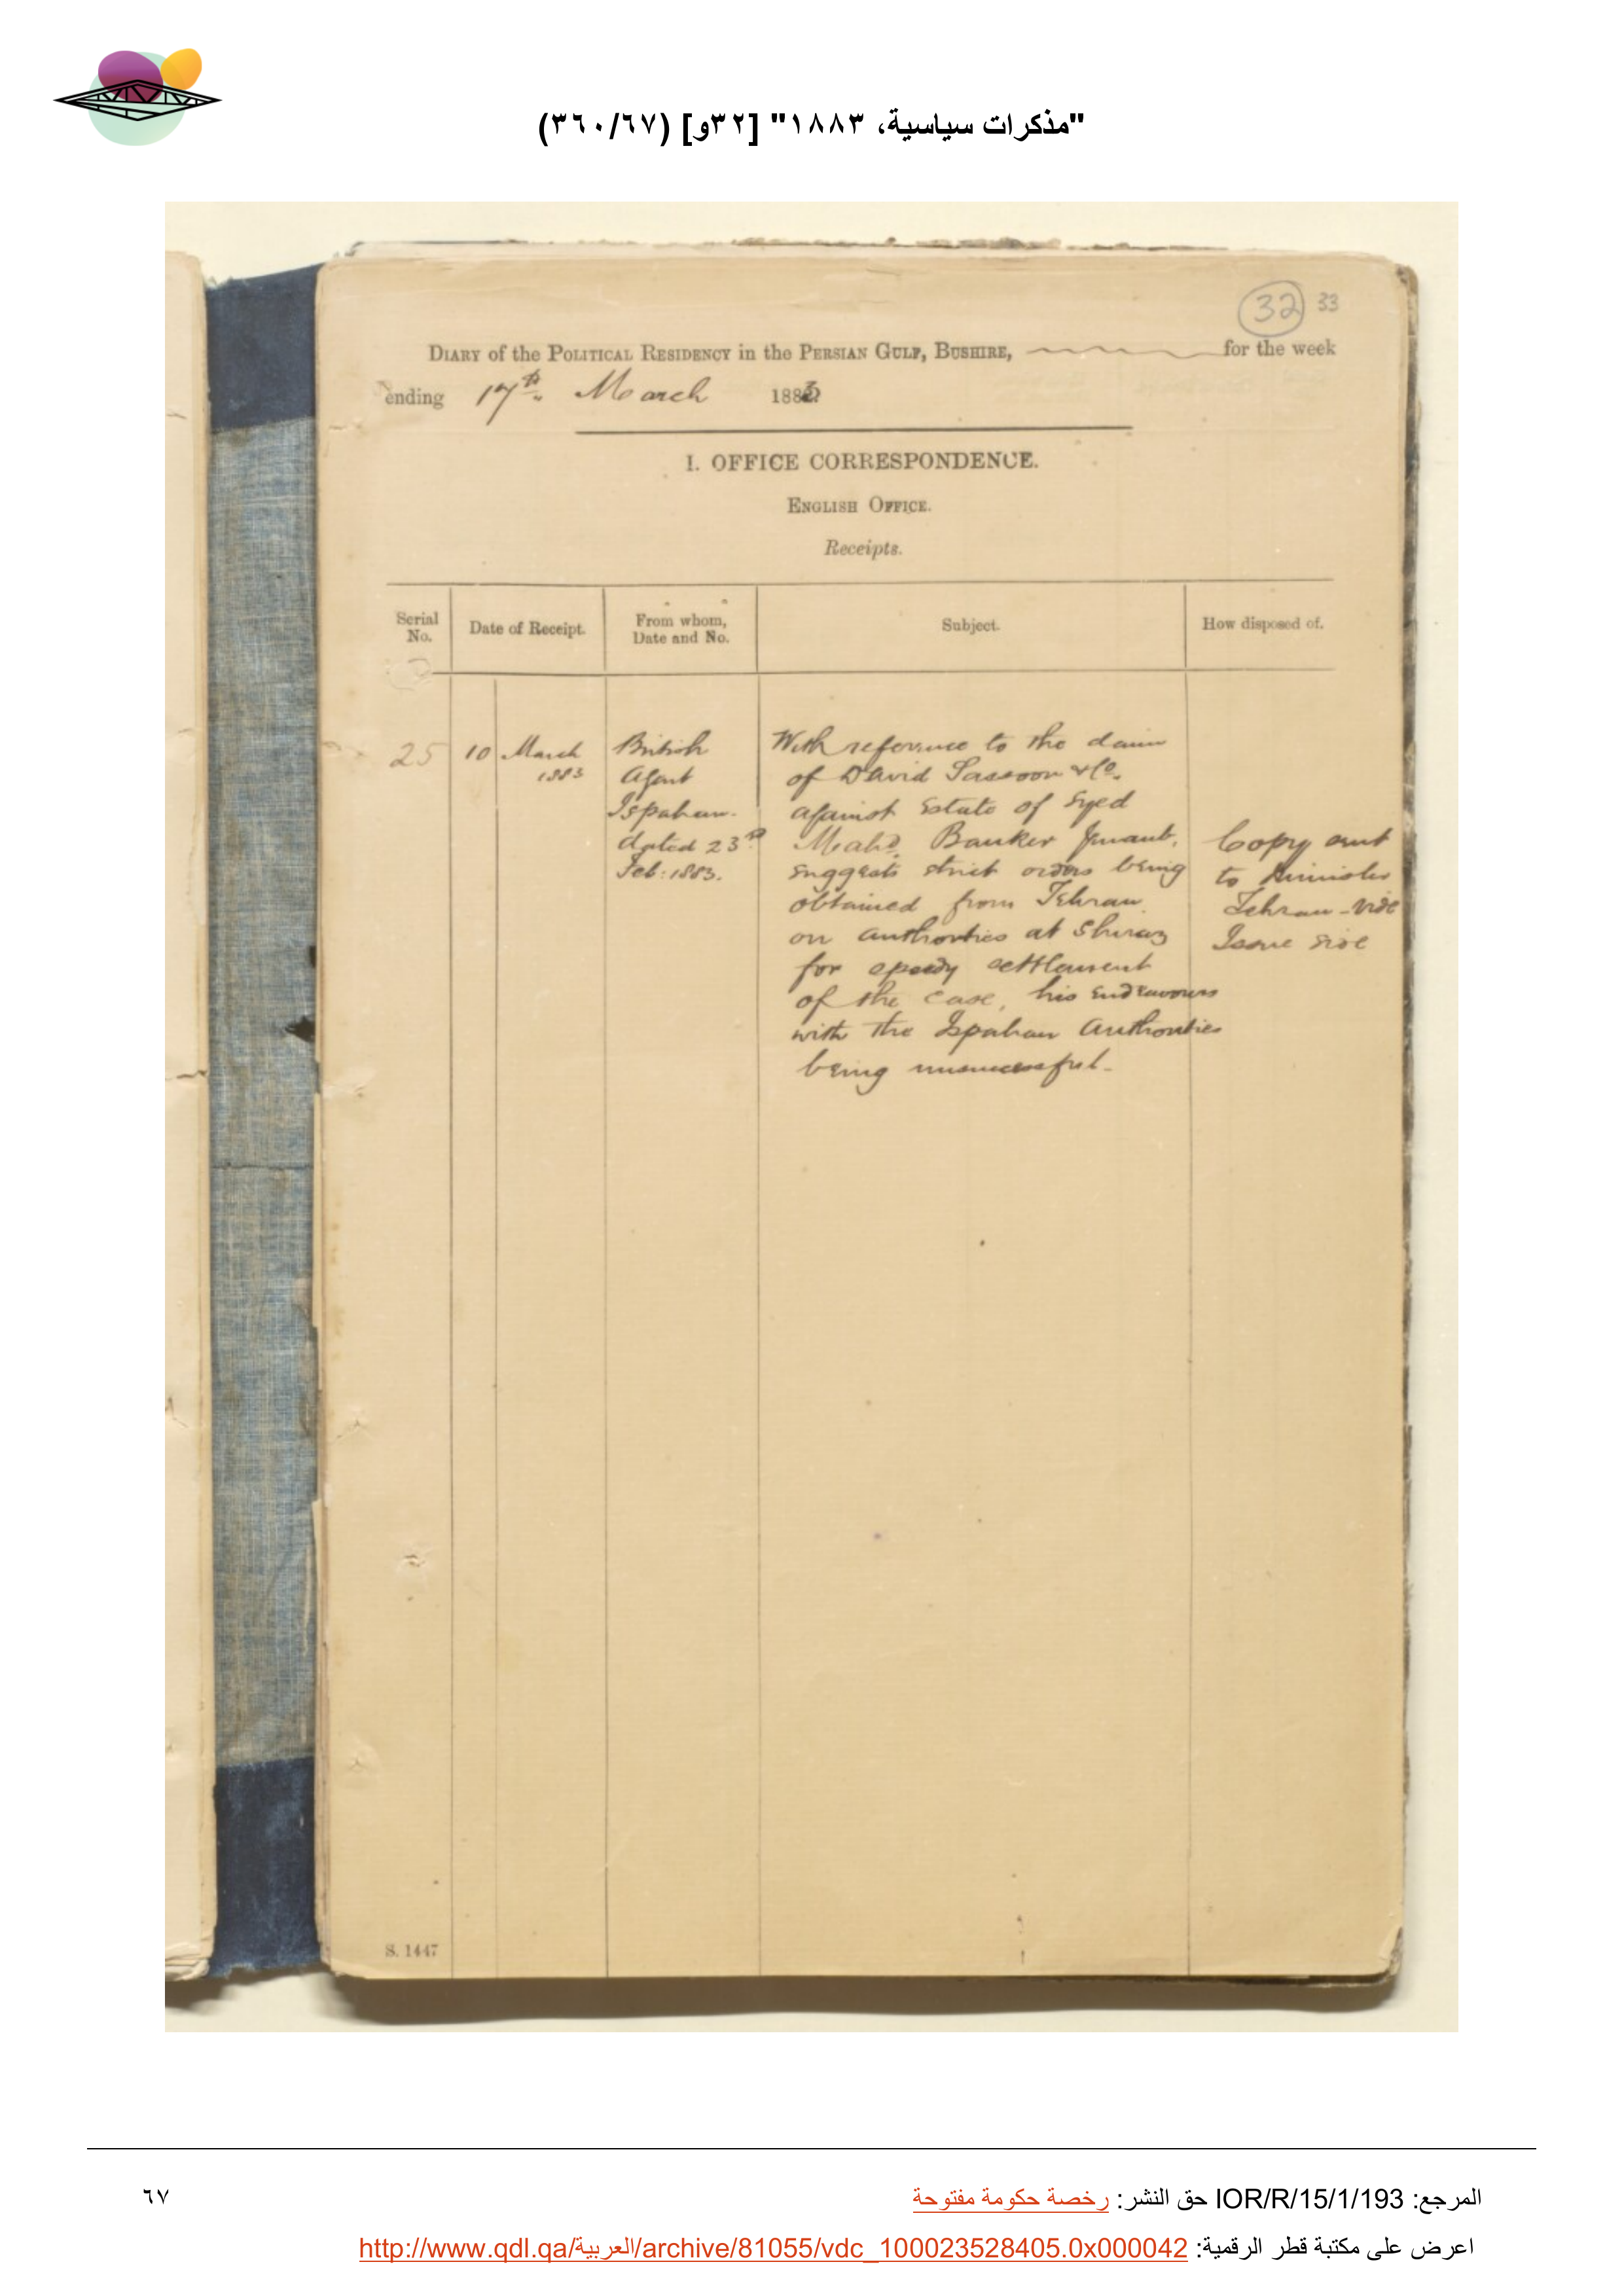 "مذكرات سياسية، ١٨٨٣" [٣٢و] (٣٦٠/٦٧)
32 33
DIARY of the POLITICAL RESIDENCY in the PERSIAN GULF, BUSHIRE, for the week
ending 17th March 1883
I. OFFICE CORRESPONDENCE.
ENGLISH OFFICE.
Receipts.
Serial No.
Date of Receipt.
From whom, Date and No.
Subject.
How disposed of.
25
10 March
1883
British
Agent
Ispahan.
dated 23rd
Feb: 1883.
With reference to the claim
of David Sassoon & Co.
against Estate of Syed
Mahd. Banker
suggests strict orders being
obtained from Tehran
on authorities at Shiraz
for speedy settlement
of the case, his endeavours
with the Ispahan Authorities
being unsuccessful.
Copy sent
to Minister
Tehran - vide
Issue side
S. 1447
المرجع: IOR/R/15/1/193 حق النشر: رخصة حكومة مفتوحة
٦٧
اعرض على مكتبة قطر الرقمية: http://www.qdl.qa/العربية/archive/81055/vdc_100023528405.0x000042